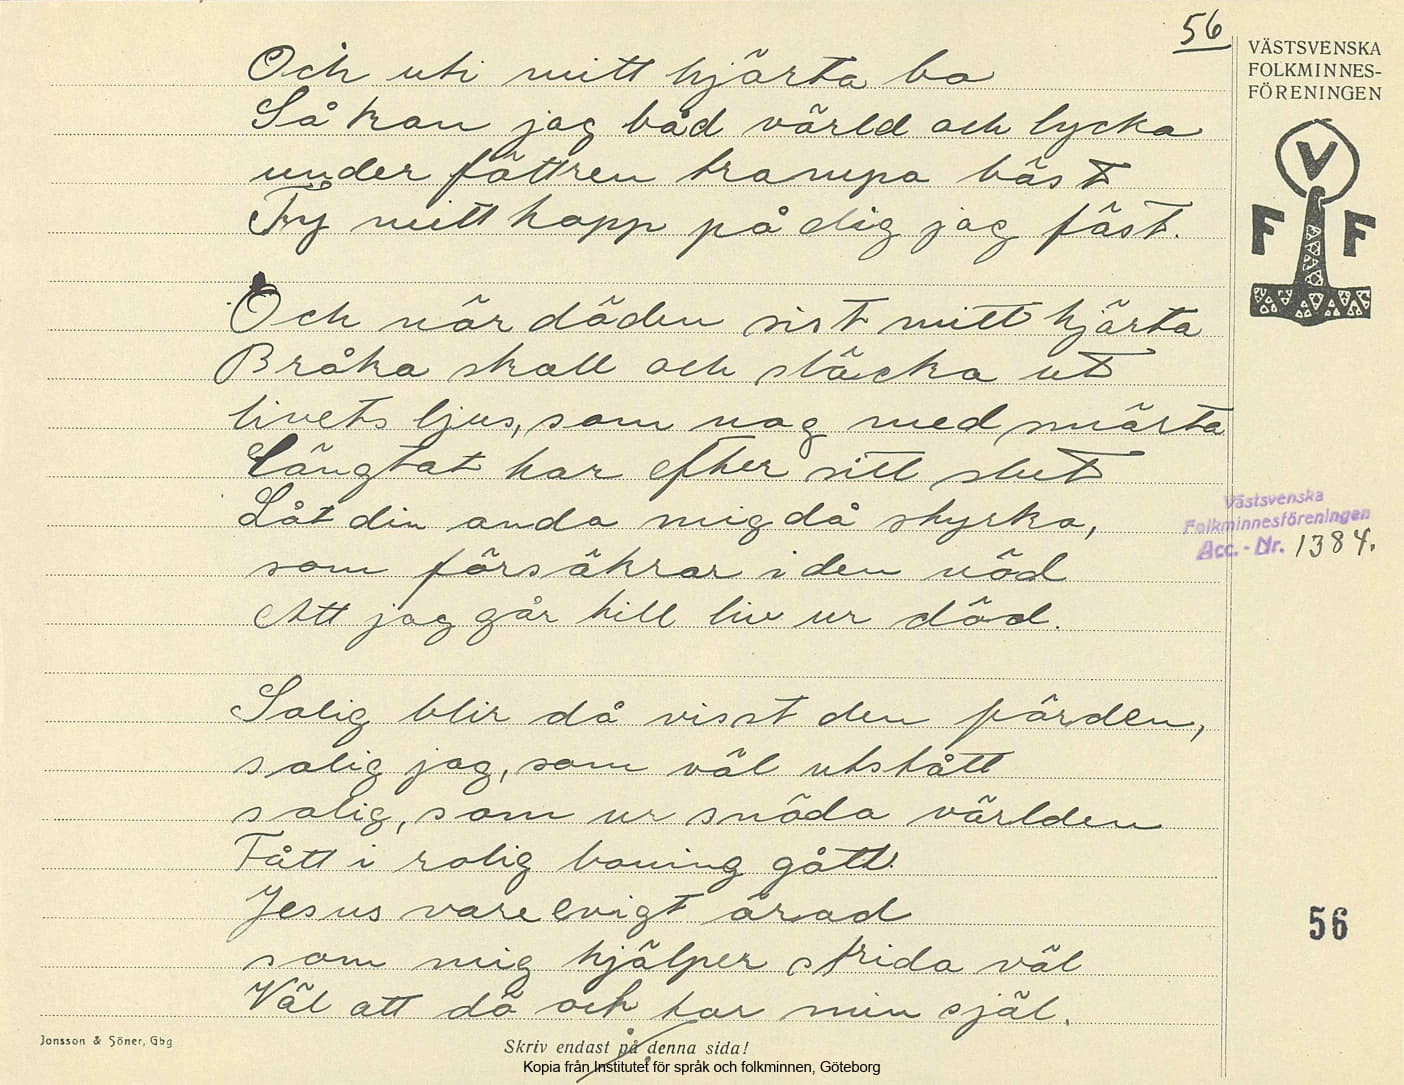 56
VÄSTSVENSKA
FOLKMINNES-
FÖRENINGEN
V
F F
Och uti mitt hjärta bo
Så kan jag båd värld och lycka
under föttren trampa bäst
Ty mitt hopp på dig jag fäst.
Och när döden sist mitt hjärta
Bråka skall och släcka ut
livets ljus, som nog med smärta
Längtat har efter sitt slut
Låt din anda mig då styrka,
som försäkrar i den nöd
Att jag går till liv ur död.
Salig blir då visst den färden,
salig jag, som väl utstått
salig, som ur snöda världen
Fått i rolig boning gått.
Jesus vare evigt ärad
som mig hjälper strida väl
Väl att dö och har min själ.
Västsvenska
Folkminnesföreningen
Acc.-Nr. 1384.
56
Jonsson & Söner, Gbg
Skriv endast på denna sida!
Kopia från Institutet för språk och folkminnen, Göteborg